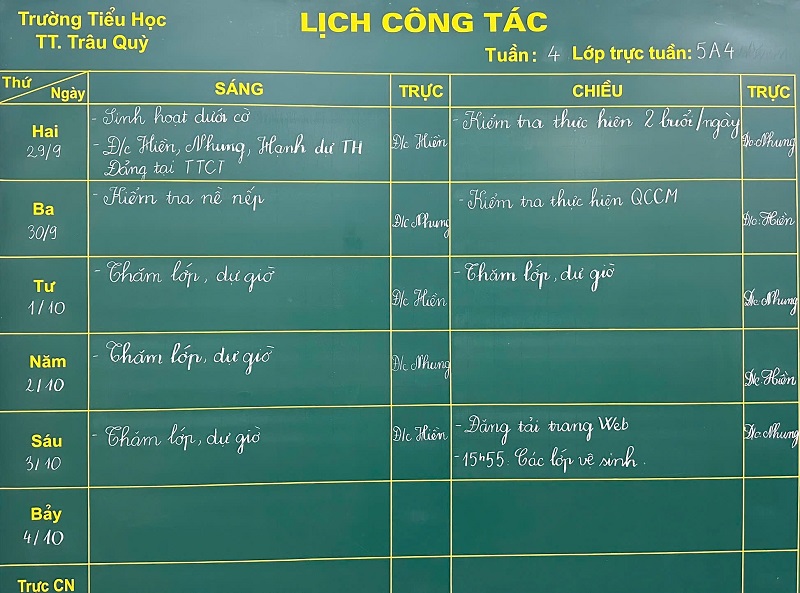 Trường Tiểu Học
TT. Trâu Quỳ
LỊCH CÔNG TÁC
Tuần: 4 Lớp trực tuần: 5A4
Thứ
Ngày
SÁNG
TRỰC
CHIỀU
TRỰC
Hai
29/9
- Sinh hoạt dưới cờ
- Đ/c Hiền, Nhung, Hạnh dự TH
Đảng tại TTCT
Đ/c Hiền
- Kiểm tra thực hiện 2 buổi/ngày
Đ/c Nhung
Ba
30/9
- Kiểm tra nề nếp
Đ/c Nhung
- Kiểm tra thực hiện QCCM
Đ/c Hiền
Tư
1/10
- Thăm lớp, dự giờ
Đ/c Hiền
- Thăm lớp, dự giờ
Đ/c Nhung
Năm
2/10
- Thăm lớp, dự giờ
Đ/c Nhung
Đ/c Hiền
Sáu
3/10
- Thăm lớp, dự giờ
Đ/c Hiền
- Đăng tải trang Web
- 15h55. Các lớp vệ sinh.
Đ/c Nhung
Bảy
4/10
Trực CN